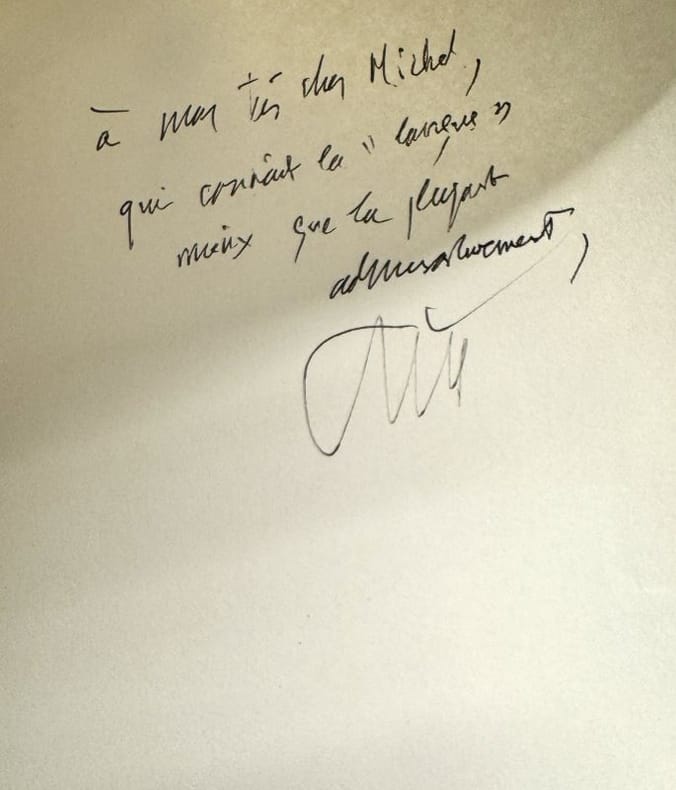 à mon très cher Michel,
qui connaît la " langue "
mieux que la plupart
admirativement,